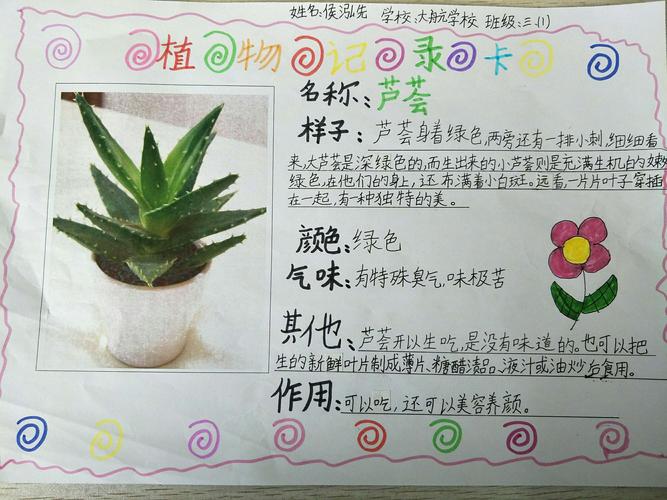 姓名:侯泓先 学校:大航学校 班级:三.川
植物记录卡
名称:芦荟
样子:芦荟身着绿色,两旁还有一排小刺,细细看
来,大芦荟是深绿色的,而生出来的小芦荟则是充满生机的嫩
绿色,在他们的身上,还布满着小白斑。远看,一片片叶子穿插
在一起,有一种独特的美。
颜色:绿色
气味:有特殊臭气,味极苦
其他:芦荟开以生吃,是没有味道的。也可以把
生的新鲜叶片制成薄片、糖醋渍品、液汁或油炒后食用。
作用:可以吃,还可以美容养颜。